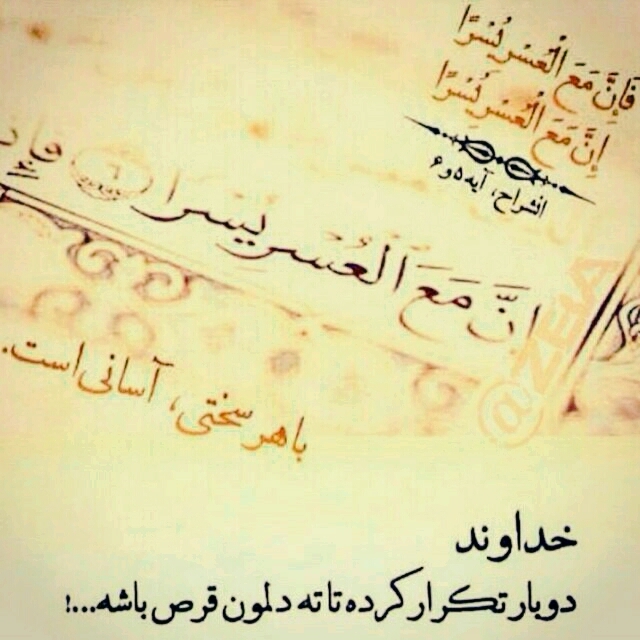 فَإِنَّ مَعَ الْعُسْرِ يُسْرًا
إِنَّ مَعَ الْعُسْرِ يُسْرًا
انشراح، آیه ۵ و ۶
إِنَّ مَعَ الْعُسْرِ يُسْرًا ٦ فَإِذَ
با هر سختی، آسانی است.
خداوند
دوبار تکرار کرده تا ته دلمون قرص باشه...!